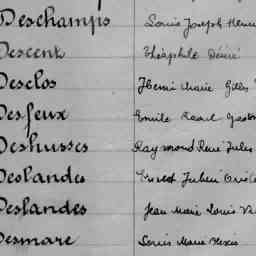 Deschamps Louis Joseph Henri
Descent Théophile Désiré
Desclos Henri Marie Gilles
Desfeux Emile Raoul Gaston
Deshusses Raymond René Jules
Deslandes Ernest Julien
Deslandes Jean Marie Louis
Desmare Louis Marie Alexis